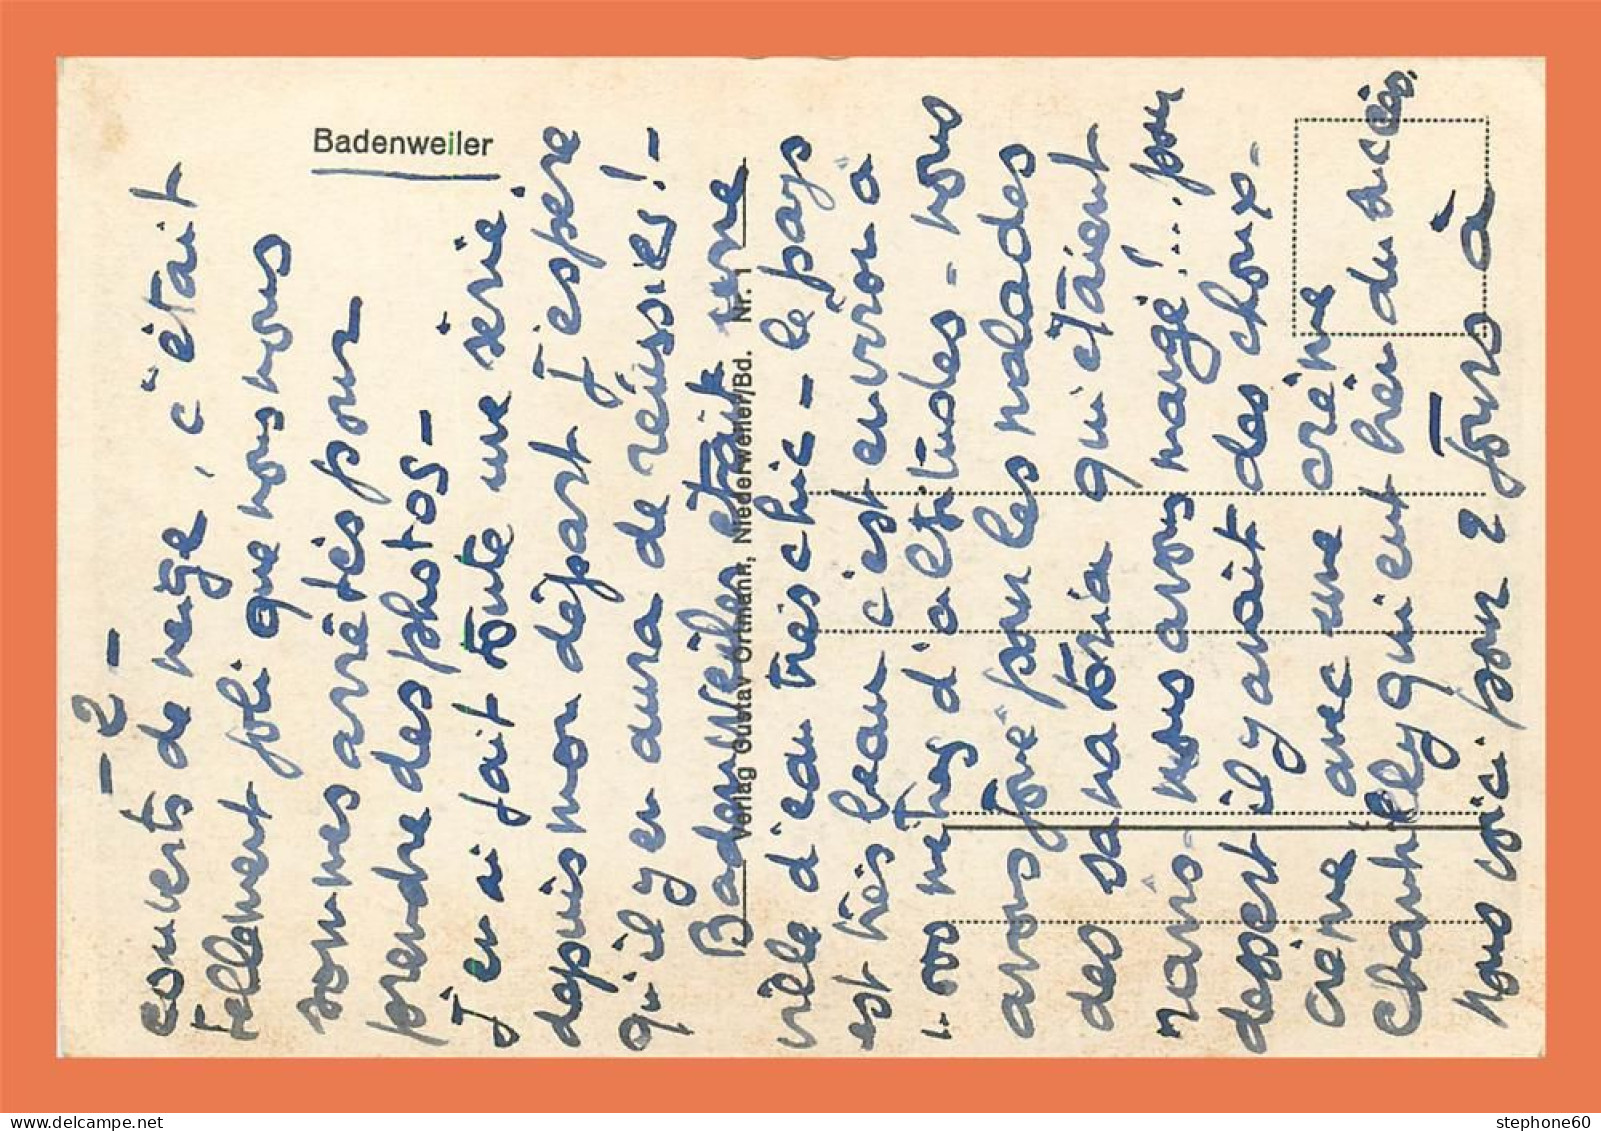 - 2 -
couverts de neige, c'était
tellement joli que nous nous
sommes arrêtés pour
prendre des photos -
J'en ai fait toute une série
depuis mon départ J'espère
qu'il y en aura de réussies! -
Badenweiler était une
ville d'eau très chic - le pays
est très beau c'est environ à
1.000 mètres d'altitudes - nous
avons joué pour les malades
des sanatoria qui étaient
nous avons mangé!... pour
dessert il y avait des choux -
crème avec une crème
chantilly qui eut hein du succès.
Nous voici pour 2 jours à
Badenweiler
Verlag Gustav Ortmann, Niederweiler/Bd. Nr. 1
stephone60